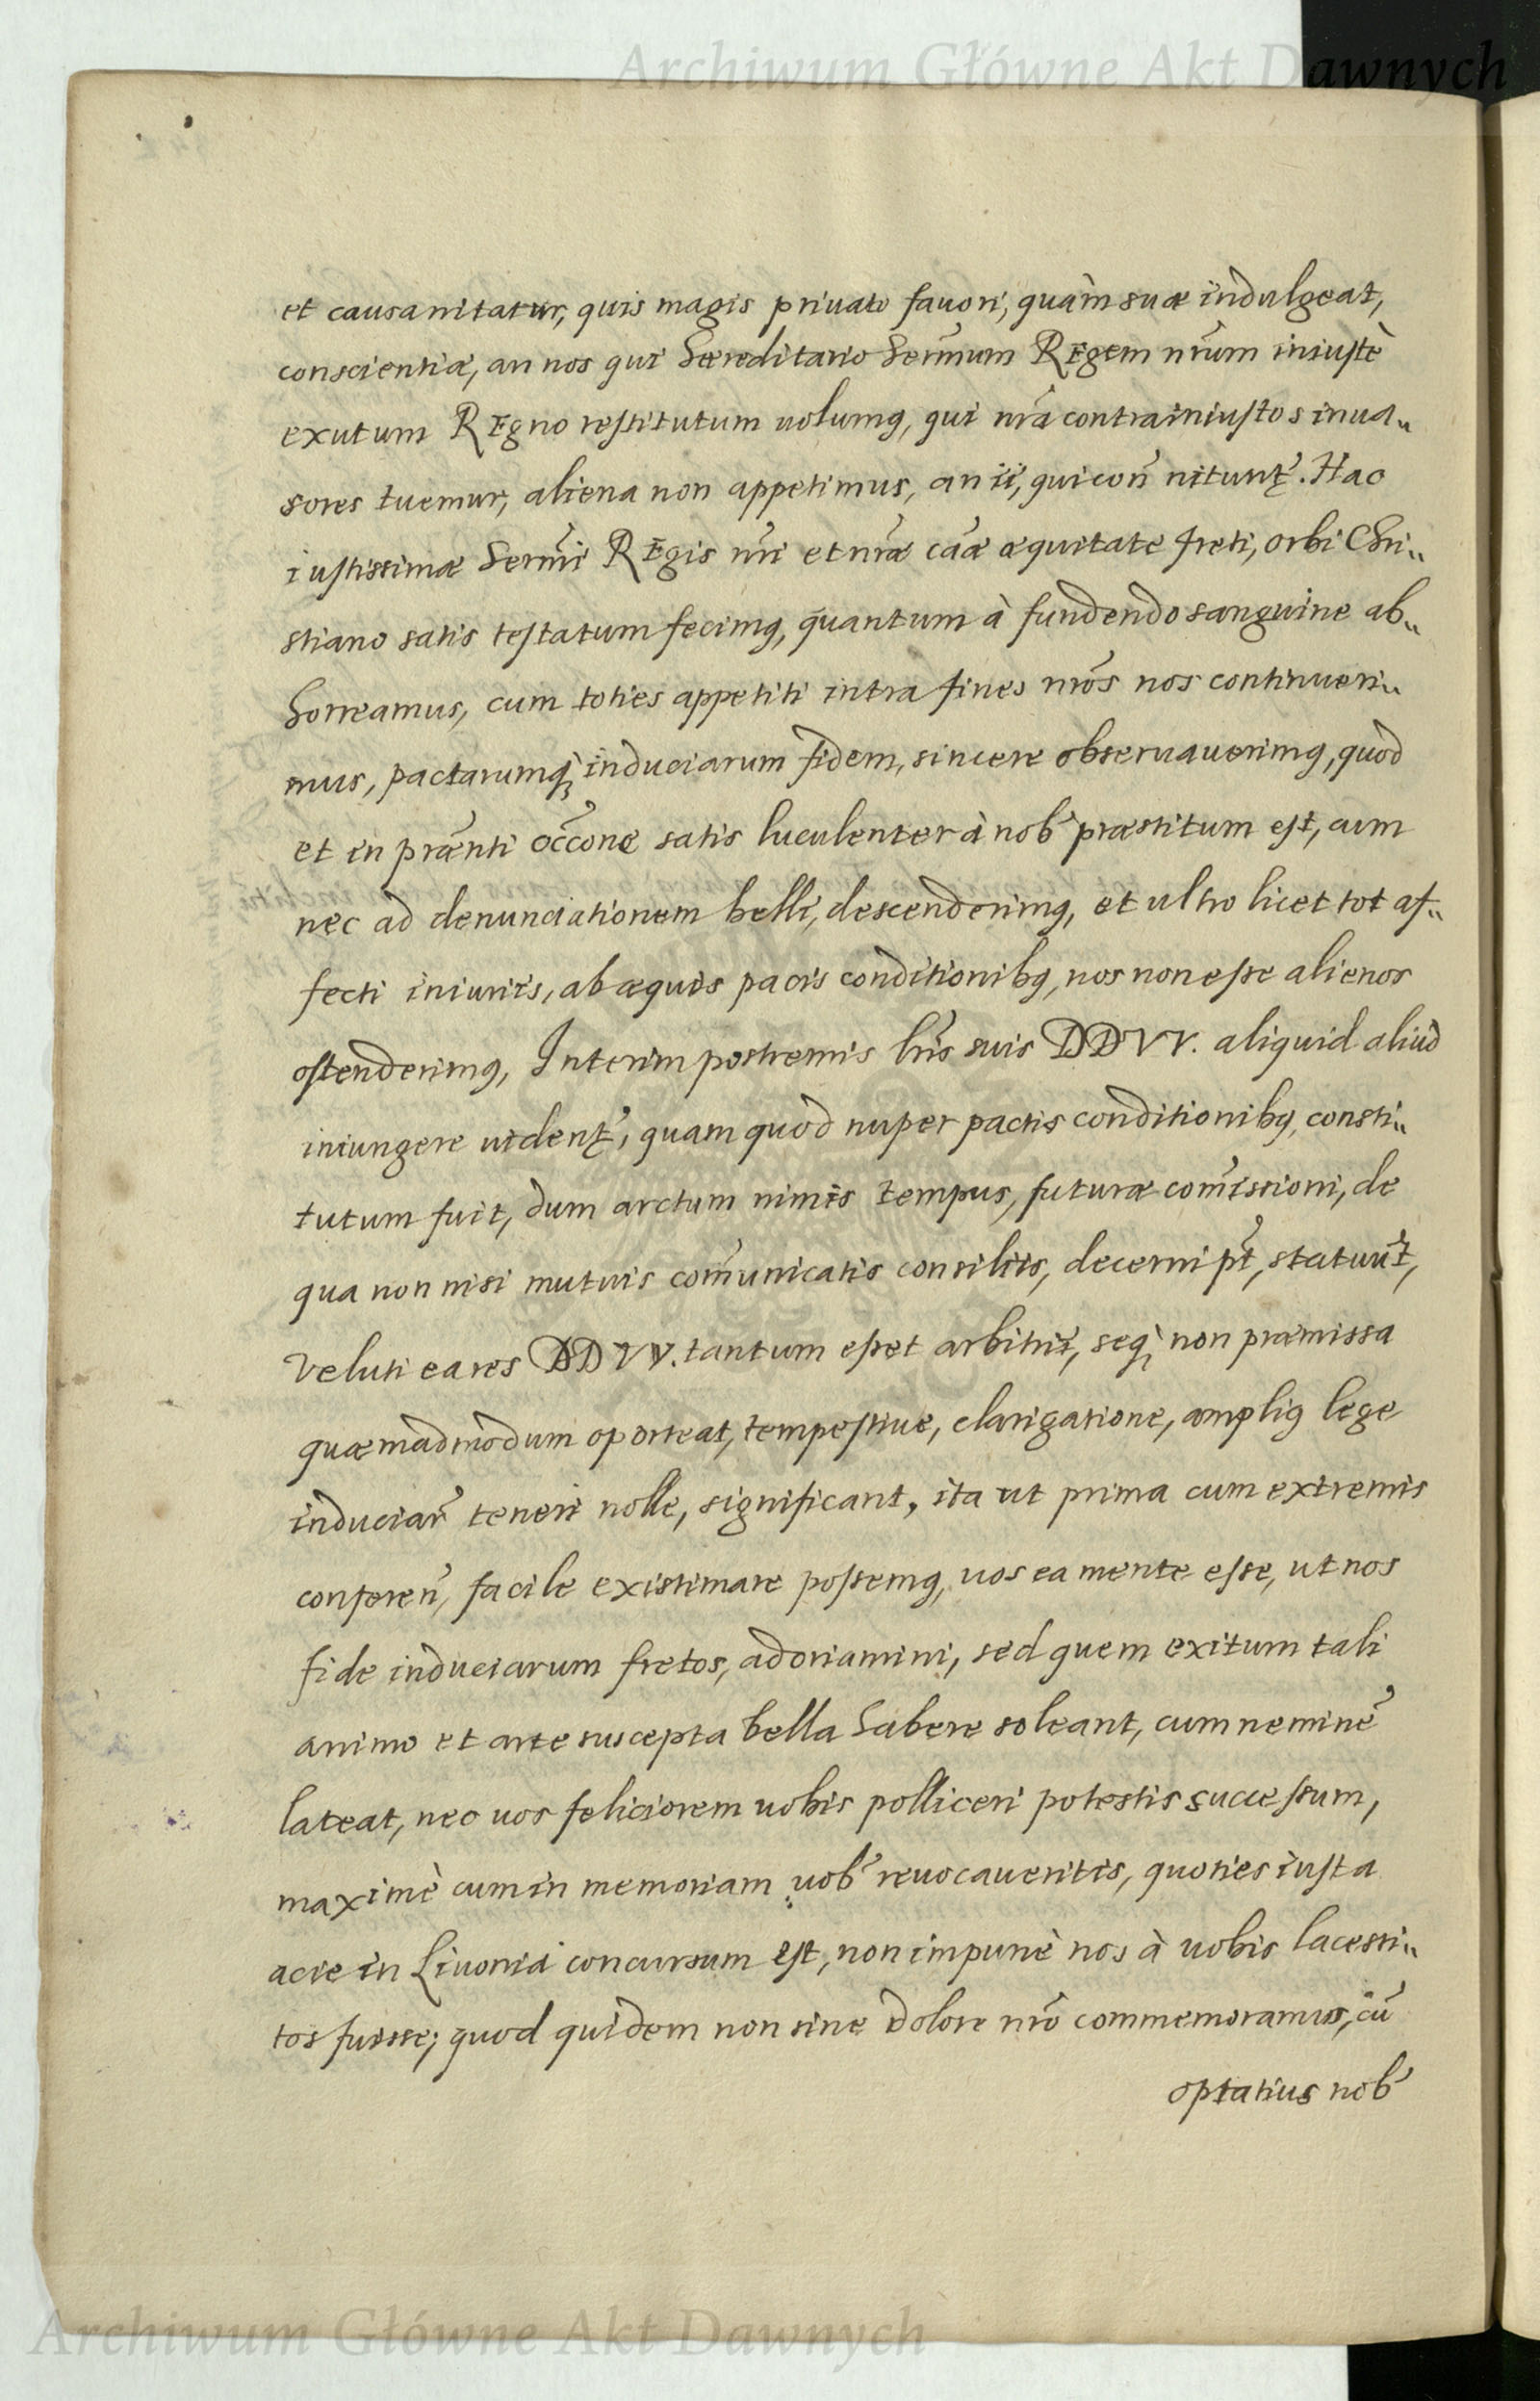 Archiwum Główne Akt Dawnych
et causa nitatur, quis magis priuato fauori, quàm suæ indulgeat,
conscientiæ, an nos qui hæreditario Serm̃um REgem nr̃um iniustè
exutum REgno restitutum uolumꝰ, qui nr̃a contra iniustos inua„
sores tuemur, aliena non appetimus, an ii, qui con̄ nitunt᷒. Hac
iustissimæ Serm̃i REgis nr̃i et nr̃æ cãæ æquitate freti, orbi Chri„
stiano satis testatum fecimꝰ, quantum à fundendo sanguine ab„
horreamus, cum toties appetiti intra fines nr̃os nos continueri„
mus, pactarumq̀ꝫ induciarum fidem, sincere obseruauerimꝰ, quod
et in præñti occõne satis luculenter à nob᷒ præstitum est, cum
nec ad denunciationem belli, descenderimꝰ, et ultro licet tot af„
fecti iniuriis, ab æquis pacis conditionibꝰ, nos non esse alienos
ostenderimꝰ, Interim postremis lr̃is suis DDVV. aliquid aliud
iniungere uident᷒, quam quod nuper pactis conditionibꝰ, consti„
tutum fuit, dum arctum nimis tempus, futuræ com̃issioni, de
qua non nisi mutuis com̃unicatis consiliis, decerni pt̃, statuũt,
Veluti ea res DDVV. tantum esset arbitrii, seq̀ꝫ non præmissa
quæmadmodum oporteat, tempestiue, clarigatione, ampliꝰ lege
induciar̃ teneri nolle, significant, ita ut prima cum extremis
conferen̄, facile existimare possemꝰ, uos ea mente esse, ut nos
fide induciarum fretos, adoriamini, sed quem exitum tali
animo et arte suscepta bella habere soleant, cum neminẽ
lateat, nec uos feliciorem uobis polliceri potestis successum,
maximè cum in memoriam uob᷒ reuocaueritis, quoties iusta
acie in Liuonia concursum est, non impunè nos à uobis lacessi„
tos fuisse; quod quidem non sine dolore nr̃o commemoramus, cũ
optatius nob᷒
Archiwum Główne Akt Dawnych